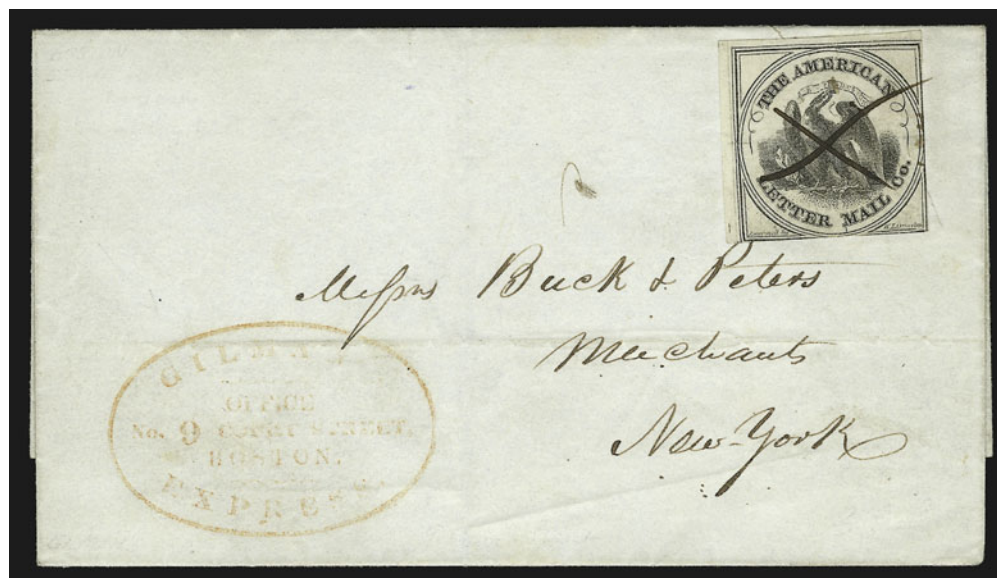 THE AMERICAN
LETTER MAIL Co.
Messrs Buck & Peters
Merchants
New-York
OFFICE
No. 9 COURT STREET,
BOSTON.
EXPRESS